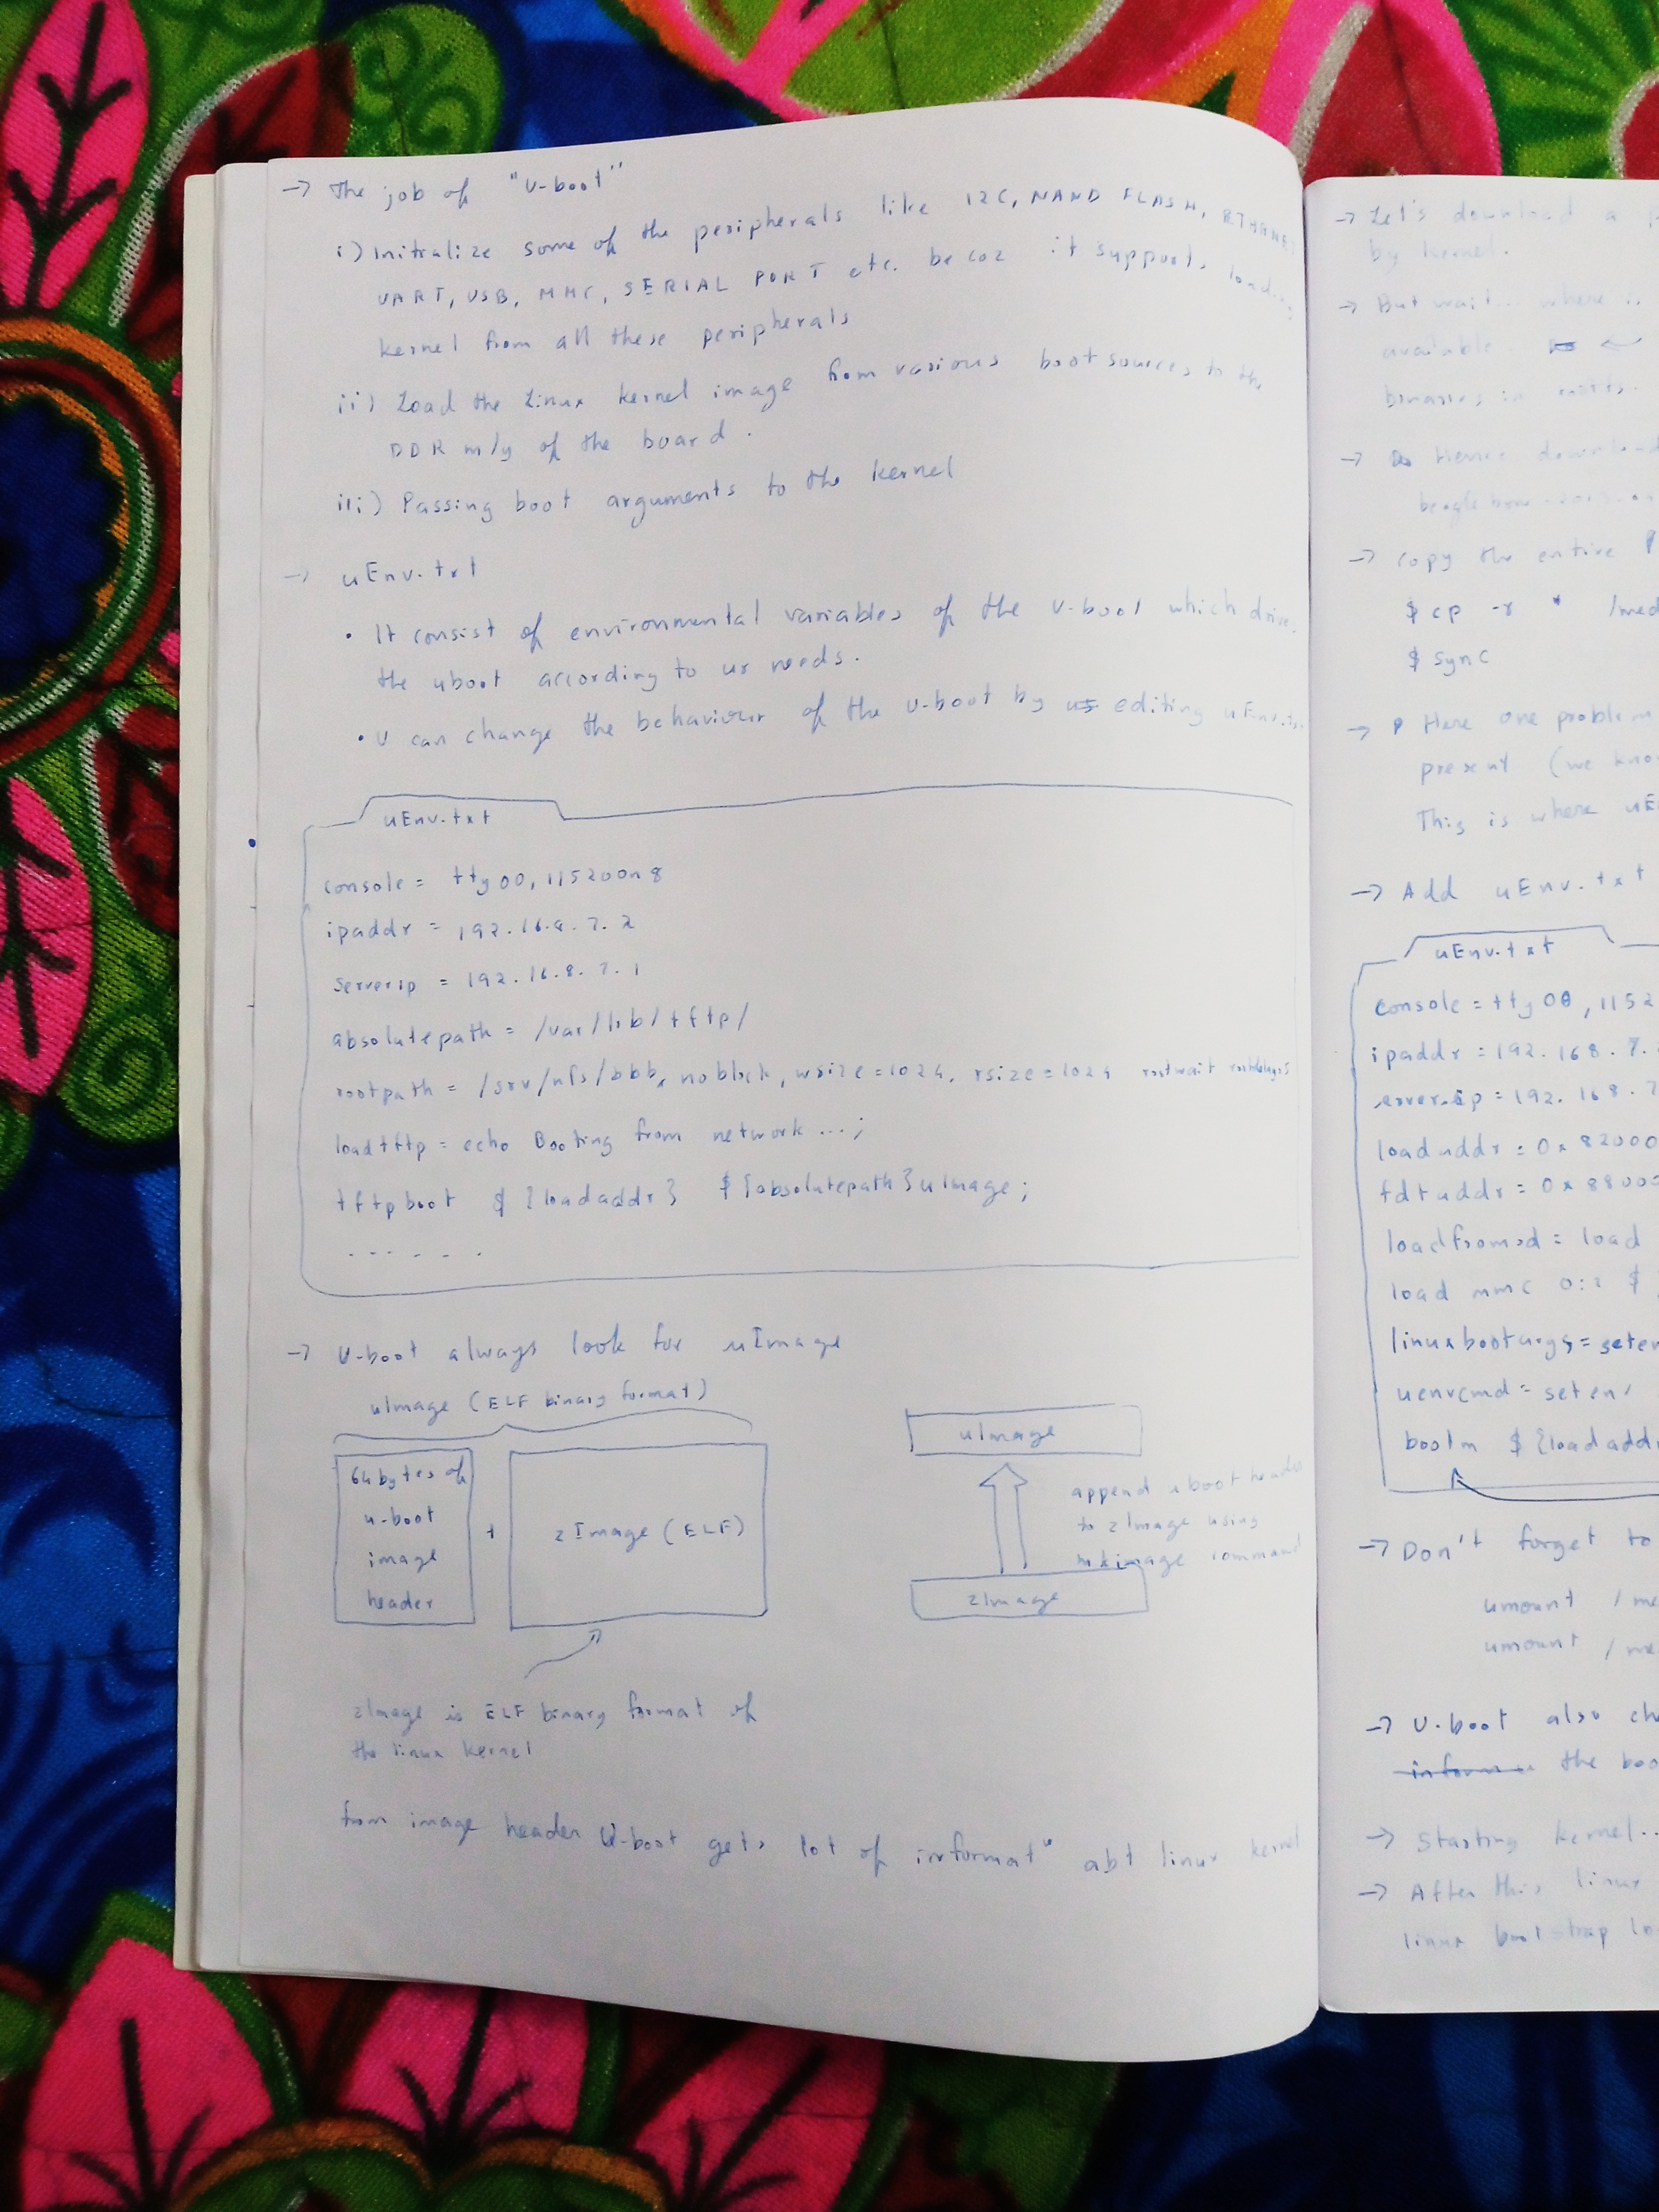 → The job of "U-boot"
i) Initialize some of the peripherals like I2C, NAND FLASH, ETHERNET
UART, USB, MMC, SERIAL PORT etc. becoz it supports loading
kernel from all these peripherals
ii) Load the Linux kernel image from various boot sources to the
DDR m/y of the board.
iii) Passing boot arguments to the kernel
→ uEnv.txt
• It consist of environmental variables of the U-boot which drive
the uboot according to ur needs.
• U can change the behaviour of the U-boot by editing uEnv.txt
uEnv.txt
console = ttyO0, 115200n8
ipaddr = 192.16.8.7.2
serverip = 192.16.8.7.1
absolutepath = /var/lib/tftp/
rootpath = /srv/nfs/bbb, noblock, wsize=1024, rsize=1024 rootwait rootdelay=5
loadtftp = echo Booting from network ...;
tftpboot ${loadaddr} ${absolutepath}uImage;
......
→ U-boot always look for uImage
uImage (ELF binary format)
64 bytes of
u-boot
image
header
+
zImage (ELF)
uImage
append uboot header
to zImage using
mkimage command
zImage
zImage is ELF binary format of
the linux kernel
from image header U-boot gets lot of informatⁿ abt linux kernel
→ Let's download a
by kernel.
→ But wait... where is
available.
binaries in
→ Hence download
→ copy the entire
$ cp -r * /med
$ sync
→ Here one problem
present (we know
This is where uE
→ Add uEnv.txt
uEnv.txt
console = ttyO0, 1152
ipaddr = 192.168.7.
serverip = 192.168.7
loadaddr = 0x82000
fdtaddr = 0x88000
loadfromsd = load
load mmc 0:2 $
linuxbootargs = seten
uenvcmd = seten
bootm ${loadadd
→ Don't forget to
umount /me
umount /me
→ U-boot also ch
the boo
→ Starting kernel..
→ After this, linux
linux bootstrap lo